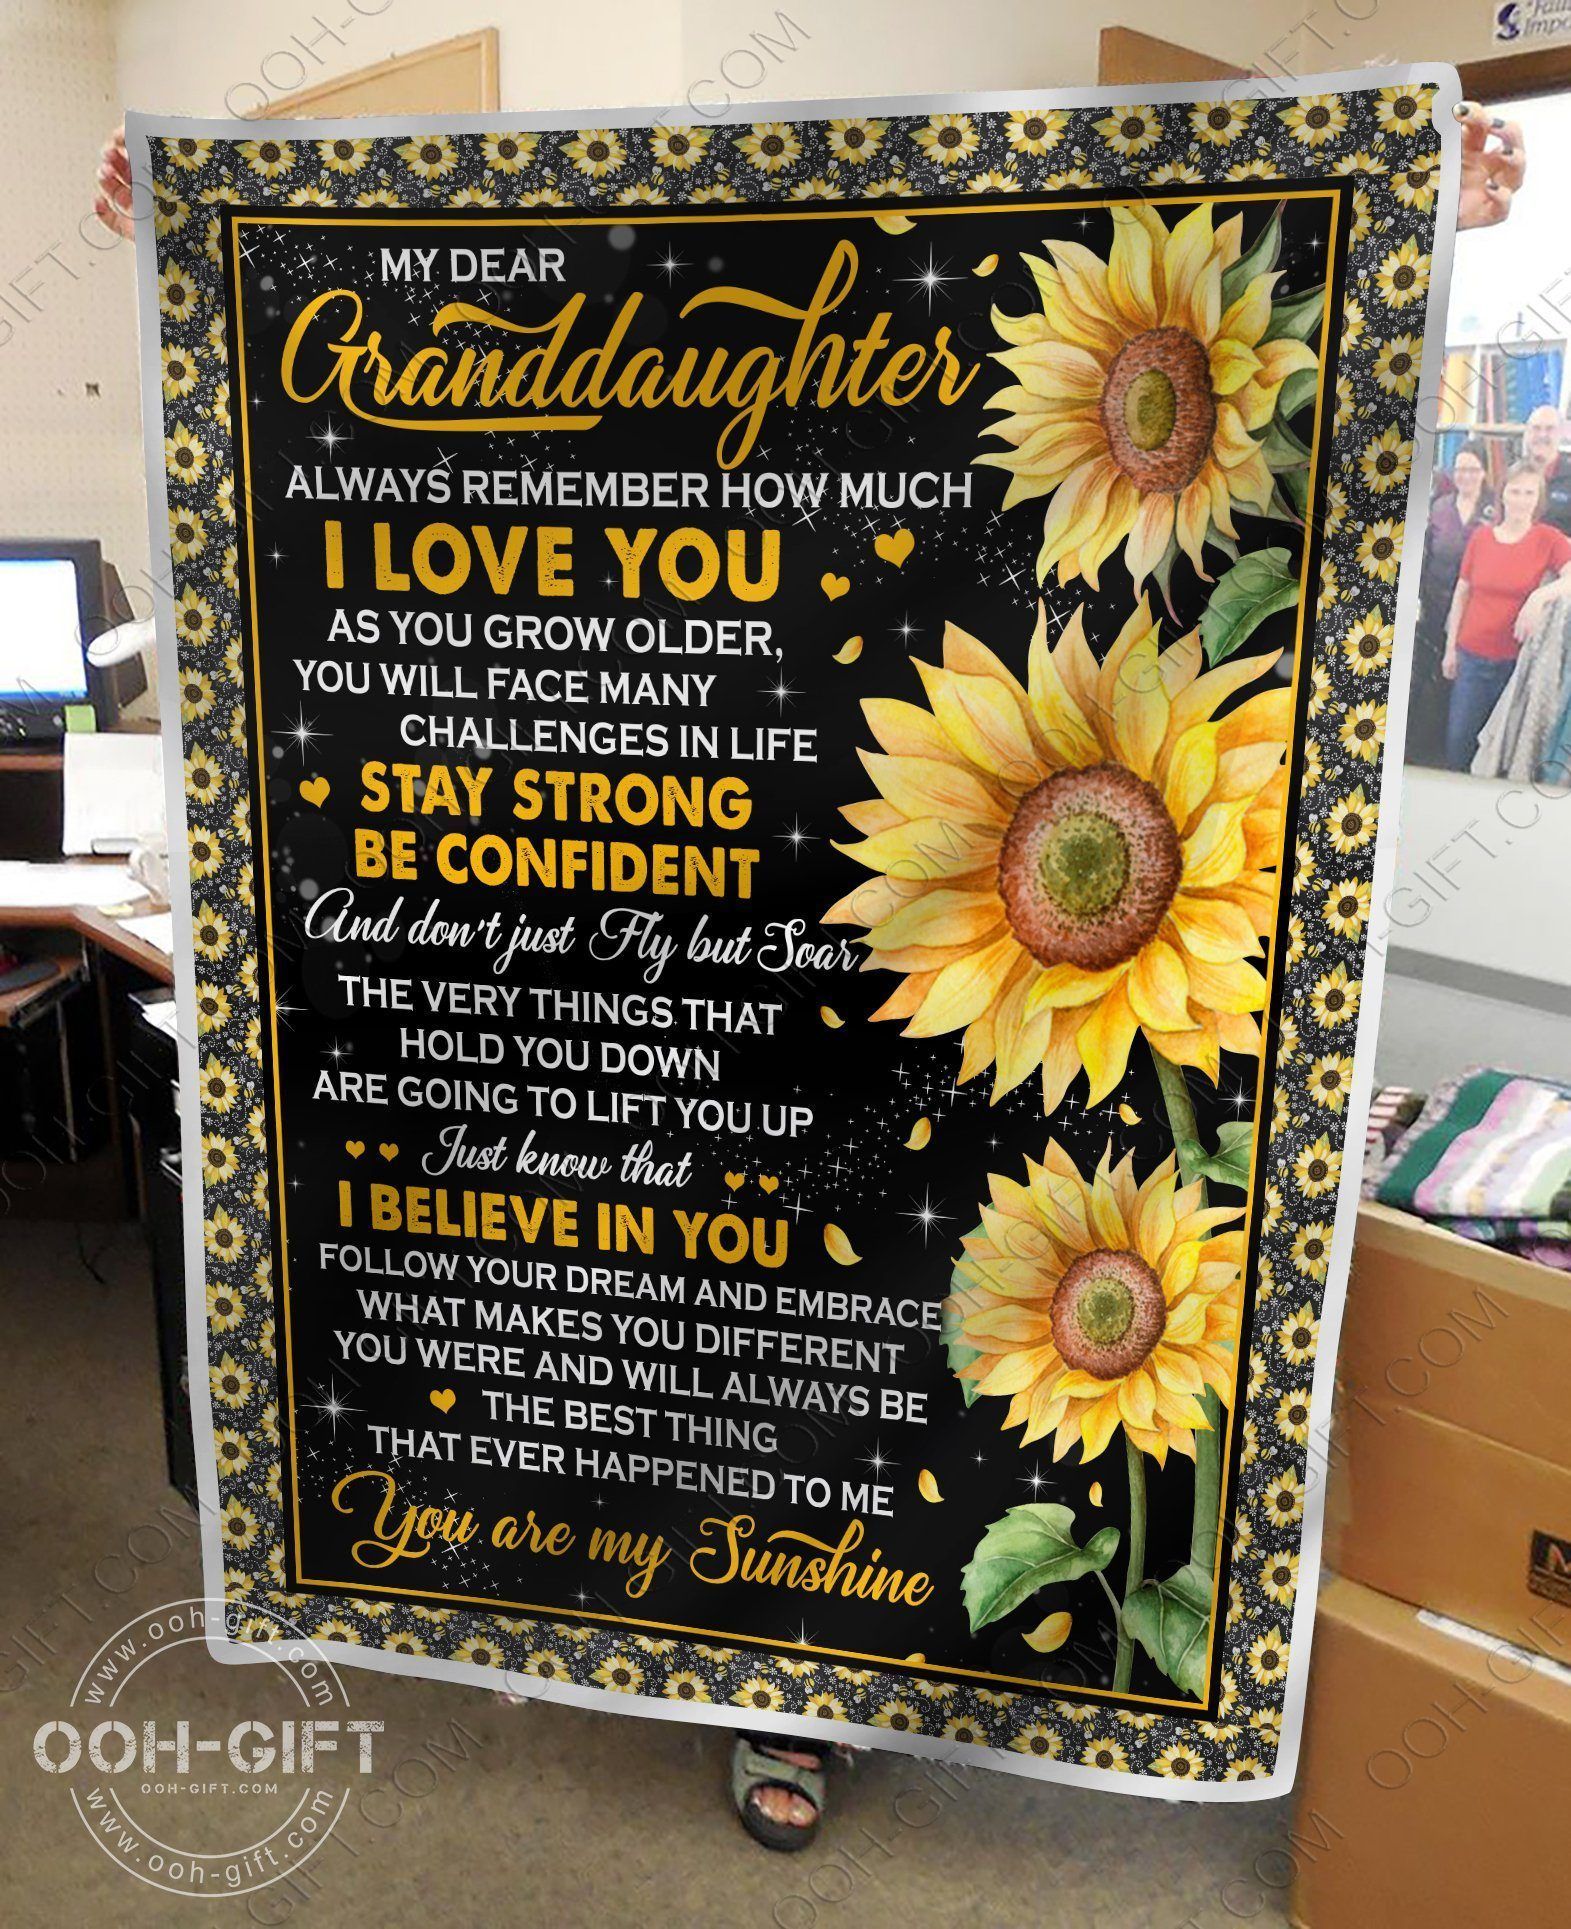 MY DEAR
Granddaughter
ALWAYS REMEMBER HOW MUCH
I LOVE YOU
AS YOU GROW OLDER,
YOU WILL FACE MANY
CHALLENGES IN LIFE
STAY STRONG
BE CONFIDENT
And don't just Fly but Soar
THE VERY THINGS THAT
HOLD YOU DOWN
ARE GOING TO LIFT YOU UP
Just know that
I BELIEVE IN YOU
FOLLOW YOUR DREAM AND EMBRACE
WHAT MAKES YOU DIFFERENT
YOU WERE AND WILL ALWAYS BE
THE BEST THING
THAT EVER HAPPENED TO ME
You are my Sunshine
www.ooh-gift.com
OOH-GIFT
OOH-GIFT.COM
www.ooh-gift.com